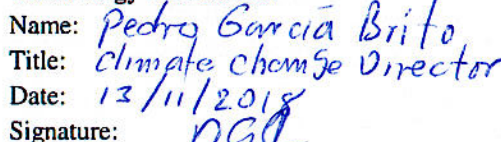 Name: Pedro García Brito
Title: Climate Change Director
Date: 13/11/2018
Signature: